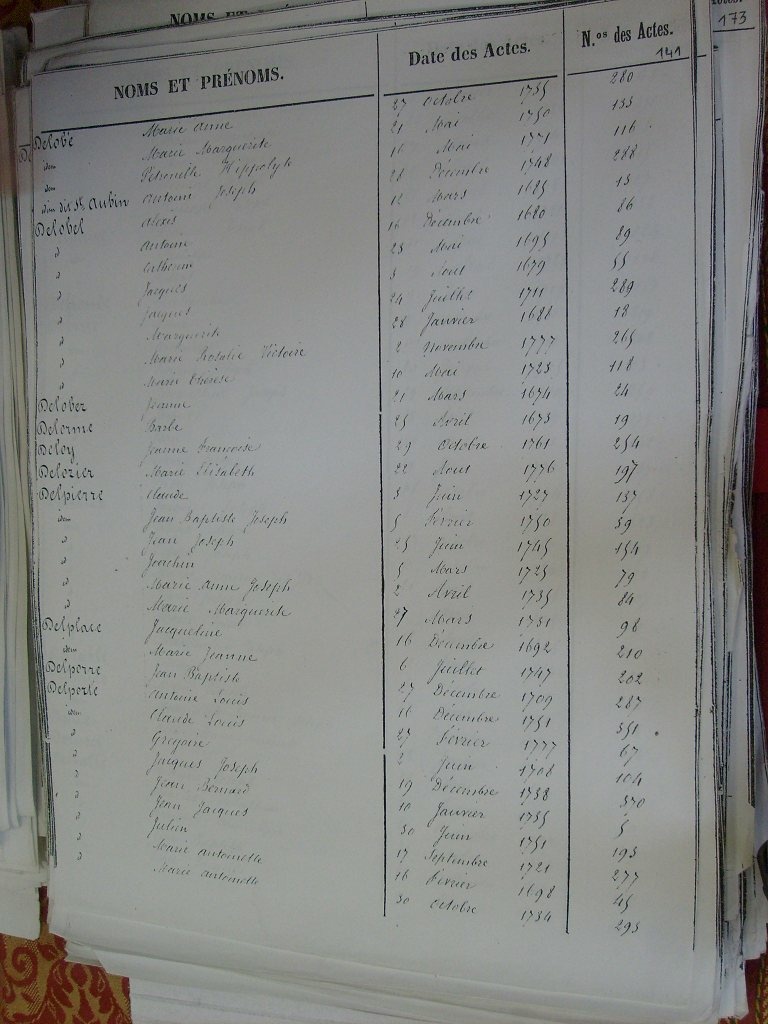 NOMS ET PRÉNOMS. Date des Actes. N.os des Actes.
173
141
Delobé Marie Anne 27 Octobre 1735 280
idem Marie Marguerite 21 Mai 1750 133
idem Petronille Hippolyte 16 Mai 1771 116
idem dit St Aubin Antoine Joseph 28 Décembre 1748 288
Delobel Alexis 12 Mars 1685 13
d Antoine 16 Décembre 1680 86
d Catherine 23 Mai 1695 89
d Jacques 3 Aout 1679 55
d Jacques 24 Juillet 1711 289
d Marguerite 28 Janvier 1688 18
d Marie Rosalie Victoire 2 Novembre 1777 265
d Marie Thérèse 10 Mai 1723 118
Delober Jeanne 21 Mars 1674 24
Delorme Barbe 25 Avril 1673 19
Deloy Jeanne Françoise 29 Octobre 1761 254
Delozier Marie Elisabeth 22 Aout 1776 197
Delpierre Claude 3 Juin 1727 137
idem Jean Baptiste Joseph 5 Février 1750 39
d Jean Joseph 25 Juin 1745 154
d Joachin 5 Mars 1725 79
d Marie Anne Joseph 2 Avril 1735 84
d Marie Marguerite 27 Mars 1731 98
Delplace Jacqueline 16 Décembre 1692 210
idem Marie Jeanne 6 Juillet 1747 202
Delporre Jean Baptiste 27 Décembre 1709 287
Delporte Antoine Louis 16 Décembre 1751 351
idem Claude Louis 27 Février 1777 67
d Gregoire 2 Juin 1708 104
d Jacques Joseph 19 Décembre 1738 370
d Jean Bernard 10 Janvier 1735 5
d Jean Jacques 30 Juin 1751 193
d Julien 17 Septembre 1721 277
d Marie Antoinette 16 Février 1698 45
d Marie Antoinette 30 Octobre 1734 293